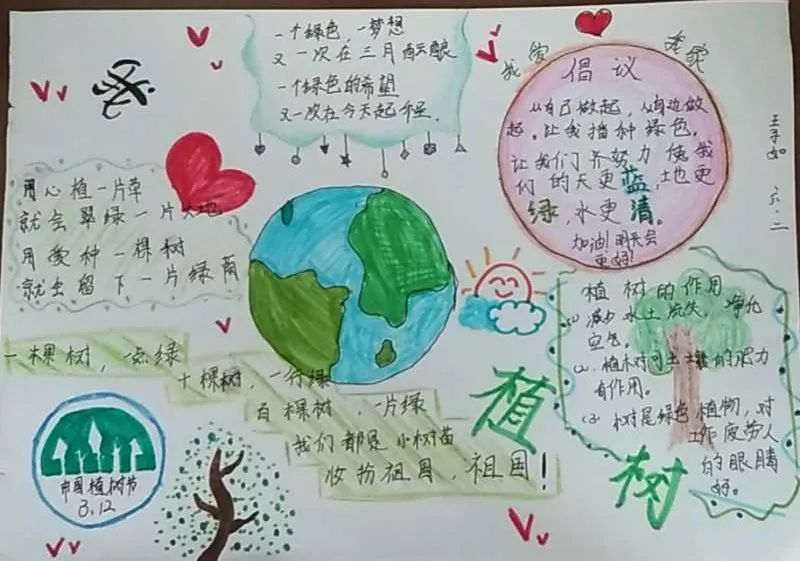 一个绿色,一梦想
又一次在三月酝酿
一个绿色的希望
又一次在今天起个至.
我爱
倡议
从自己做起,从身边做
起。让我播种绿色。
让我们齐努力使我
们的天更蓝,地更
绿,水更清。
加油!明天会
更好!
六.二
用心植一片草
就会翠绿一片大地
用爱种一棵树
就会留下一片绿荫
一棵树,一点绿
十棵树,一行绿
百棵树,一片绿
我们都是小树苗
妆扮祖国,祖国!
植树的作用
(1)减少水土流失,净化
空气。
(2).植树对于土壤的肥力
有作用。
(3)树是绿色植物,对
工作疲劳人
的眼睛
好。
植
树
中国植树节
3.12